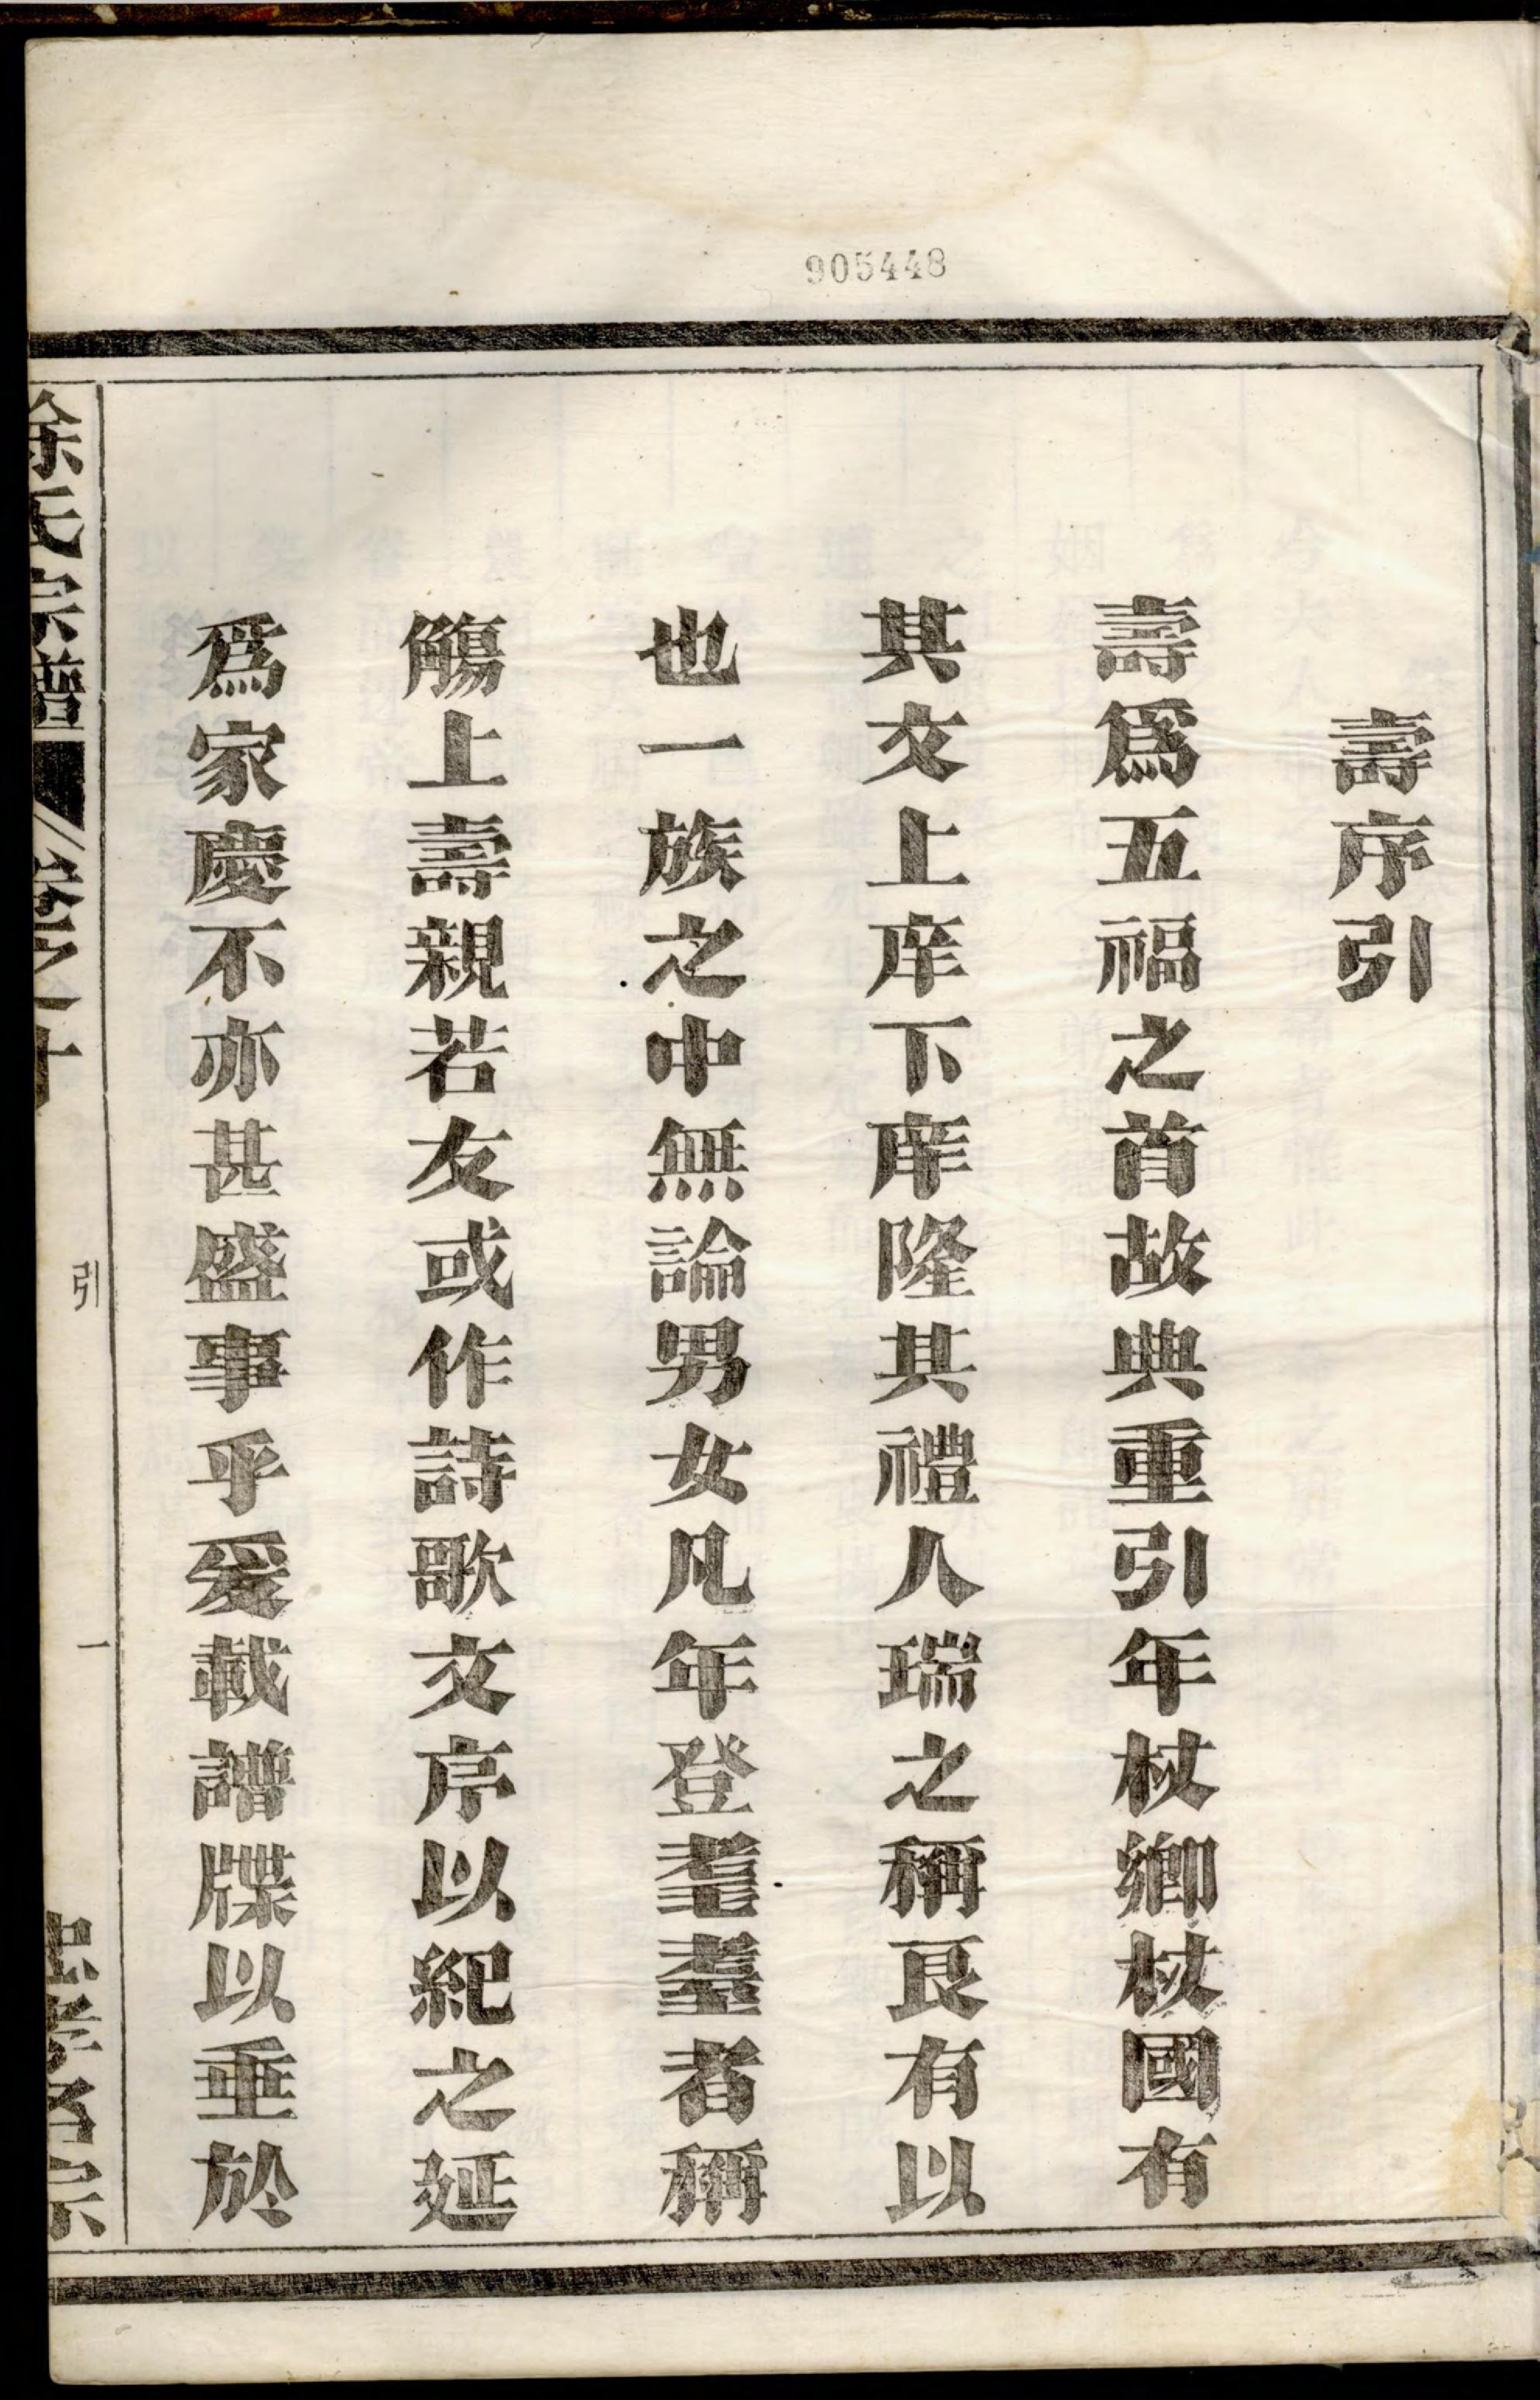 905448
壽序引
壽爲五福之首故典重引年杖鄉杖國有
其文上庠下庠隆其禮人瑞之稱良有以
也一族之中無論男女凡年登耄耋者稱
觴上壽親若友或作詩歌文序以紀之延
爲家慶不亦甚盛事乎爰載譜牒以垂於
徐氏宗譜 卷之十 引 一 忠孝名宗